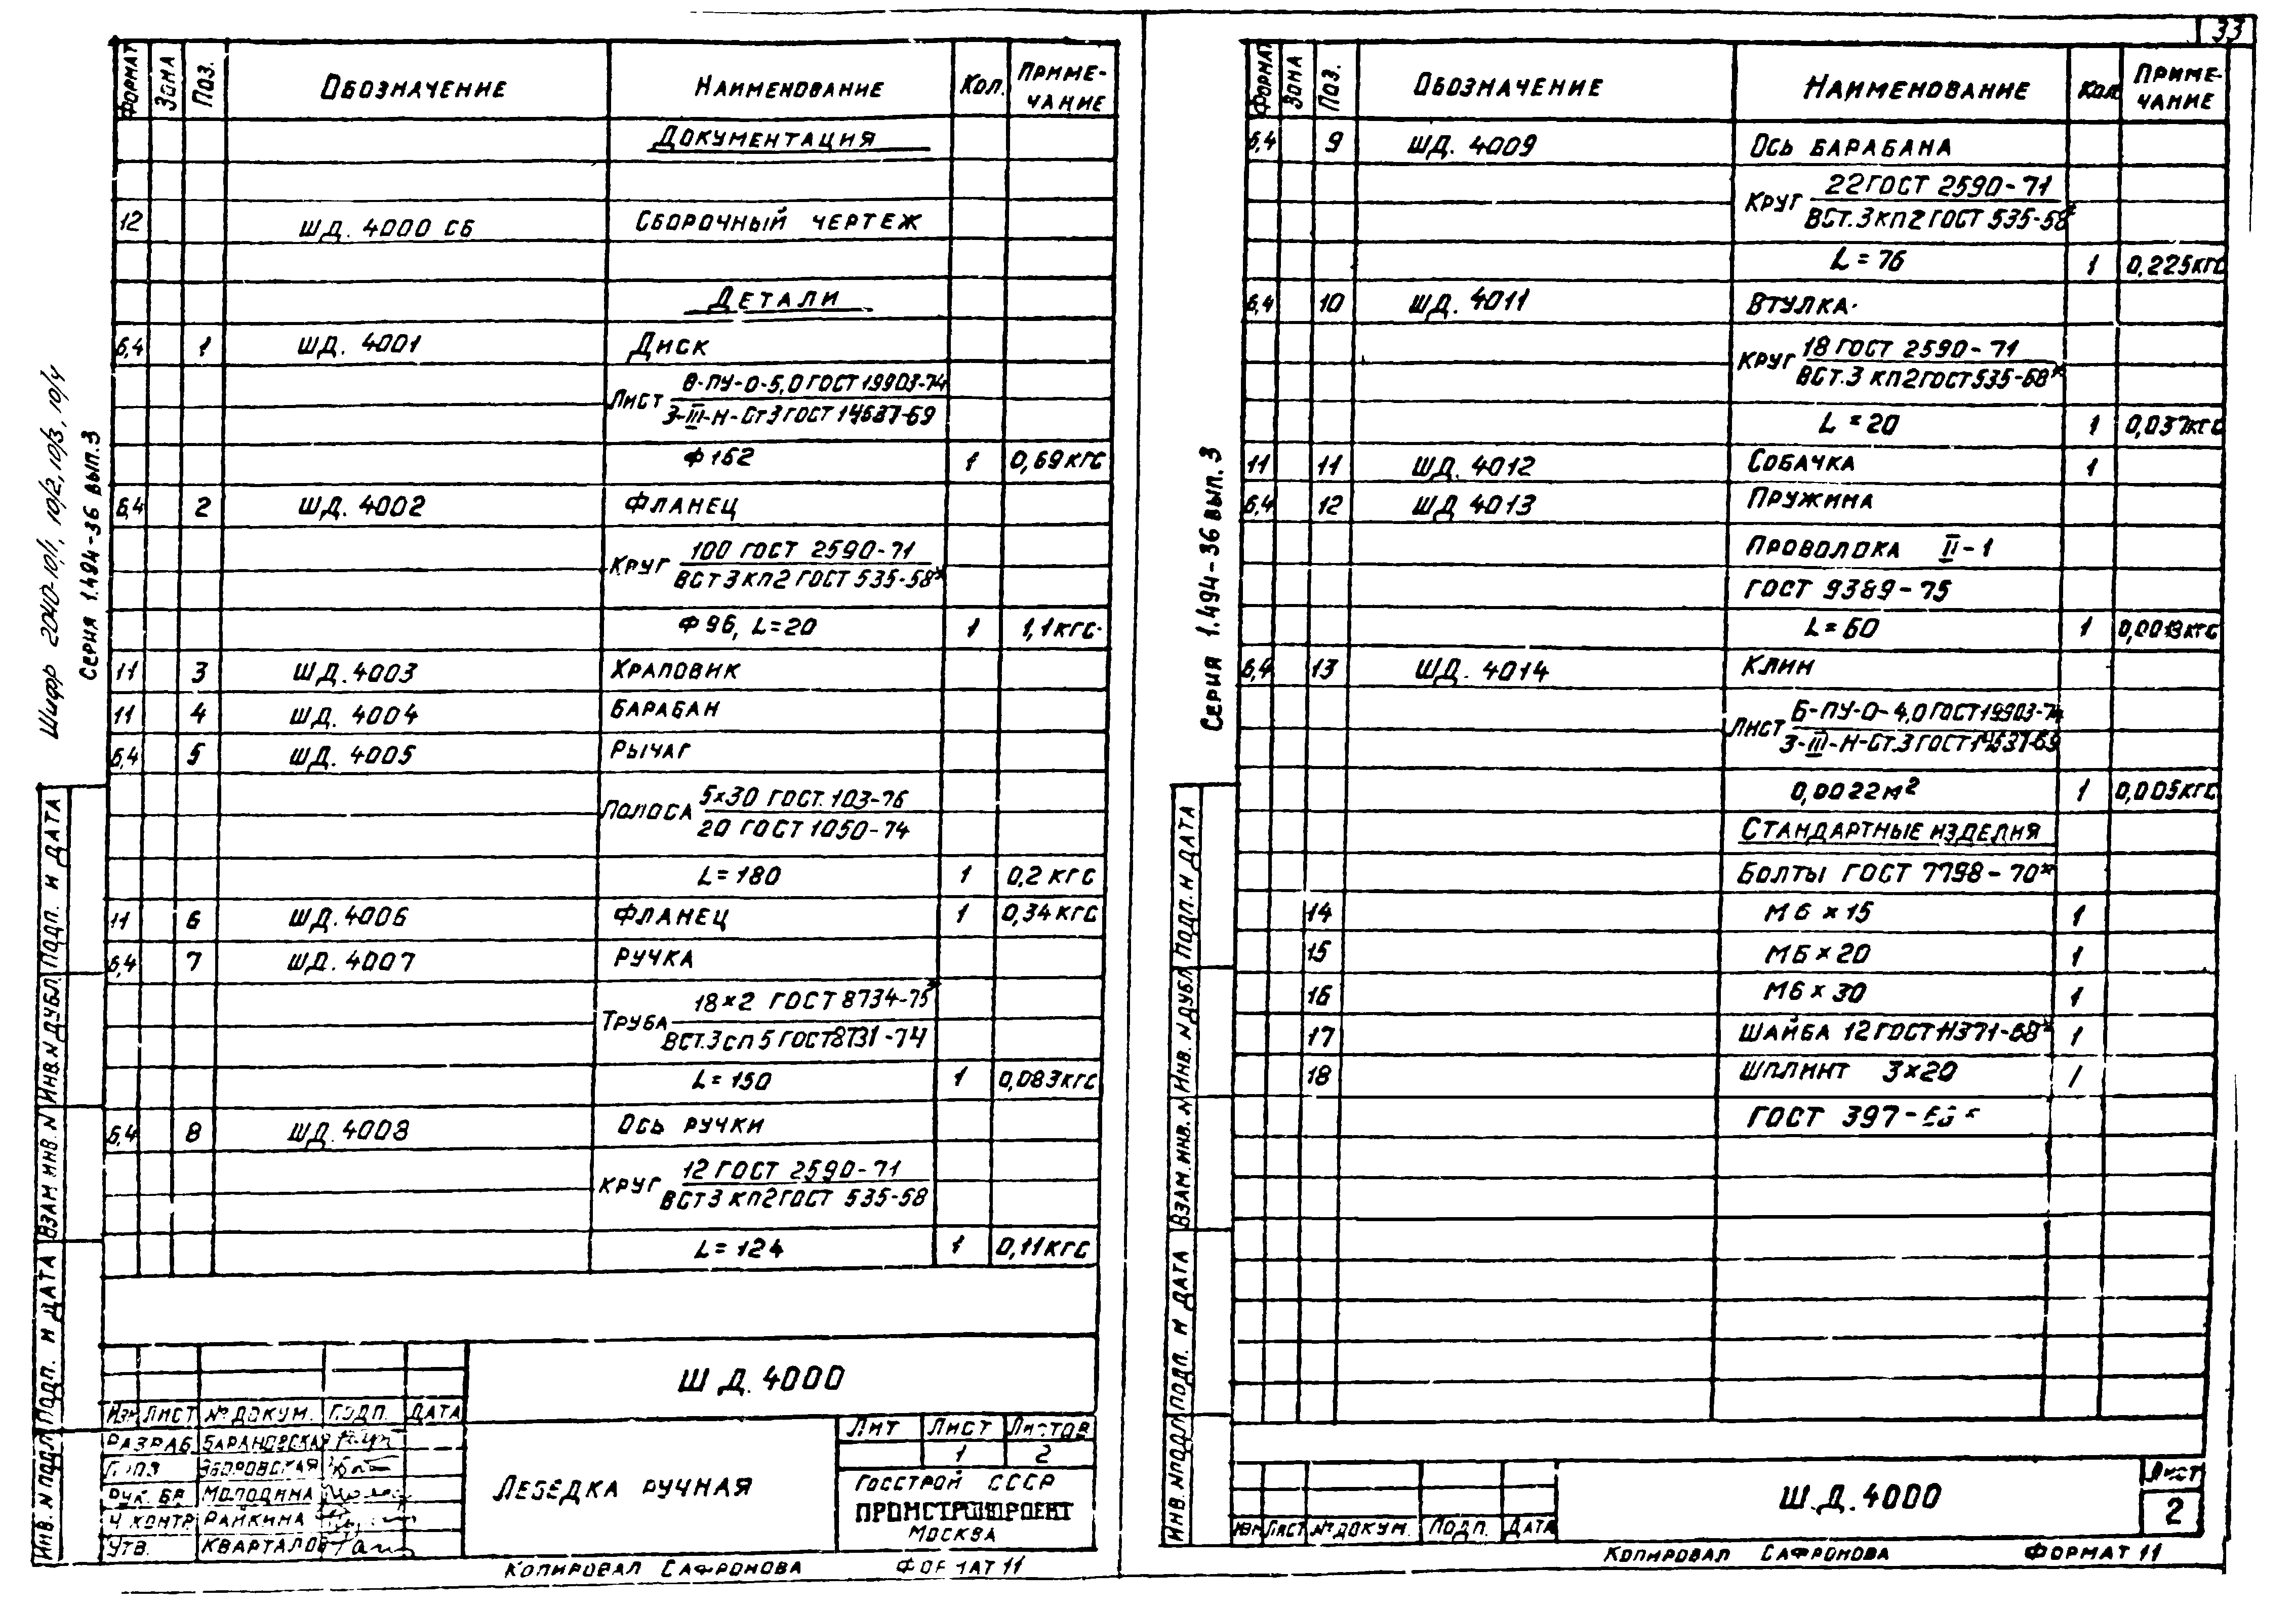 33
Шифр 2040-10/1, 10/2, 10/3, 10/4
Серия 1.494-36 вып.3
Формат Зона Поз. Обозначение Наименование Кол. Приме-
чание
Документация
12 ШД. 4000 СБ Сборочный чертеж
Детали
Б,4 1 ШД. 4001 Диск
Лист Б-ПУ-О-5,0 ГОСТ 19903-74
3-III-Н-Ст3 ГОСТ 14637-69
Ф 152 1 0,69 кгс
Б,4 2 ШД. 4002 Фланец
Круг 100 ГОСТ 2590-71
ВСт3кп2 ГОСТ 535-58*
Ф 96, L=20 1 1,1 кгс.
11 3 ШД. 4003 Храповик
11 4 ШД. 4004 Барабан
Б,4 5 ШД. 4005 Рычаг
Полоса 5×30 ГОСТ. 103-76
20 ГОСТ 1050-74
L=180 1 0,2 кгс
11 6 ШД. 4006 Фланец 1 0,34 кгс
Б,4 7 ШД. 4007 Ручка
Труба 18×2 ГОСТ 8734-75*
ВСт.3сп5 ГОСТ 8731-74
L=150 1 0,083 кгс
Б,4 8 ШД. 4008 Ось ручки
Круг 12 ГОСТ 2590-71
ВСт3кп2 ГОСТ 535-58
L=124 1 0,11 кгс
ШД. 4000
Изм Лист № докум. Подп. Дата
Разраб. Барановская
Зборовская
Рук. бр Молодина
Н.контр Райкина
Утв. Квартало
Лебедка ручная
Лит Лист Листов
1 2
Госстрой СССР
ПРОМСТРОЙПРОЕКТ
Москва
Копировал Сафронова Формат 11
Инв. N подл Подп. и дата Взам инв. N Инв. N дубл Подп. и дата
Серия 1.494-36 вып. 3
Формат Зона Поз. Обозначение Наименование Кол. Приме-
чание
Б,4 9 ШД. 4009 Ось барабана
Круг 22 ГОСТ 2590-71
ВСт.3кп2 ГОСТ 535-58*
L=76 1 0,225 кгс
Б,4 10 ШД. 4011 Втулка
Круг 18 ГОСТ 2590-71
ВСт.3 кп2 ГОСТ 535-58*
L=20 1 0,037 кгс
11 11 ШД. 4012 Собачка 1
Б,4 12 ШД 4013 Пружина
Проволока II-1
ГОСТ 9389-75
L=60 1 0,0013 кгс
Б,4 13 ШД. 4014 Клин
Лист Б-ПУ-О-4,0 ГОСТ 19903-74
3-III-Н-Ст.3 ГОСТ 14637-69
0,0022 м² 1 0,005 кгс
Стандартные изделия
Болты ГОСТ 7798-70*
14 М6×15 1
15 М6×20 1
16 М6×30 1
17 Шайба 12 ГОСТ 11371-68* 1
18 Шплинт 3×20 1
ГОСТ 397-
ШД. 4000
Лист
2
Изм Лист № докум. Подп. Дата
Копировал Сафронова Формат 11
Инв. N подл Подп. и дата Взам. инв. N Инв. N дубл Подп. и дата